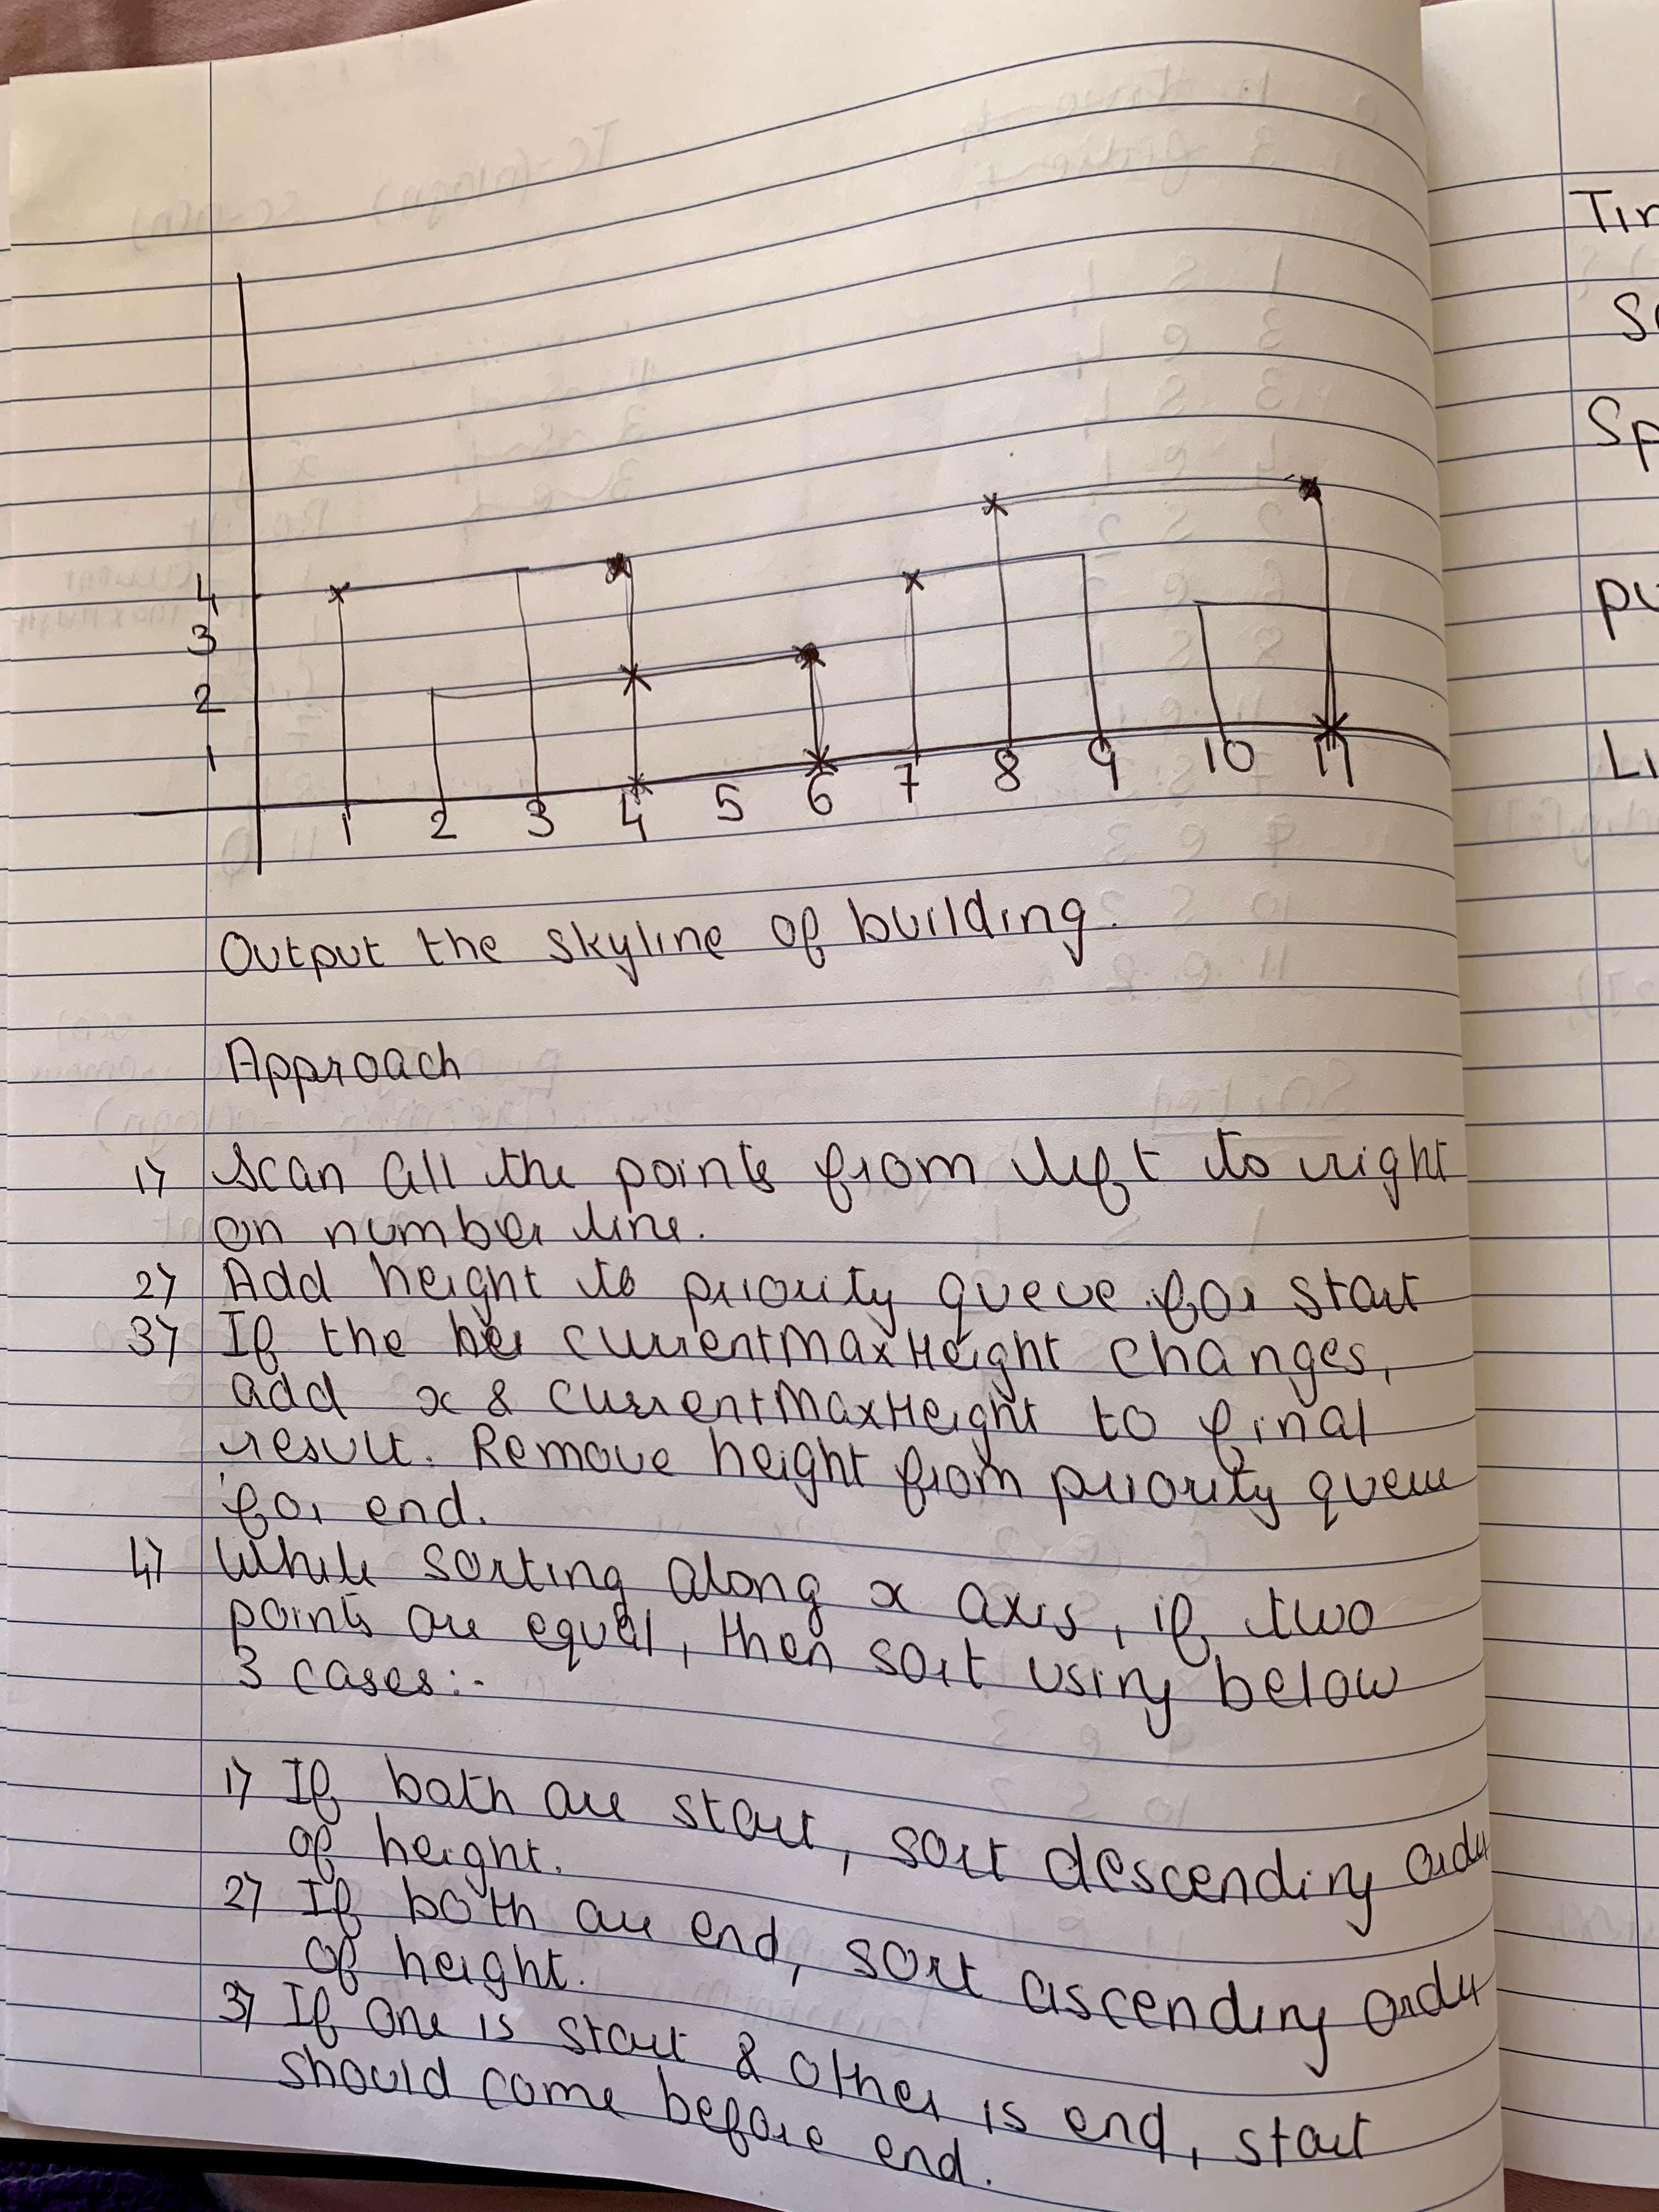 4
3
2
1
1 2 3 4 5 6 7 8 9 10 11
Output the skyline of building.
Approach
1) Scan all the points from left to right
on number line.
2) Add height to priority queue for start
3) If the hei currentMaxHeight changes,
add x & currentMaxHeight to final
result. Remove height from priority queue
for end.
4) While sorting along x axis, if two
points are equal, then sort using below
3 cases:-
1) If both are start, sort descending order
of height.
2) If both are end, sort ascending order
of height.
3) If one is start & other is end, start
should come before end.